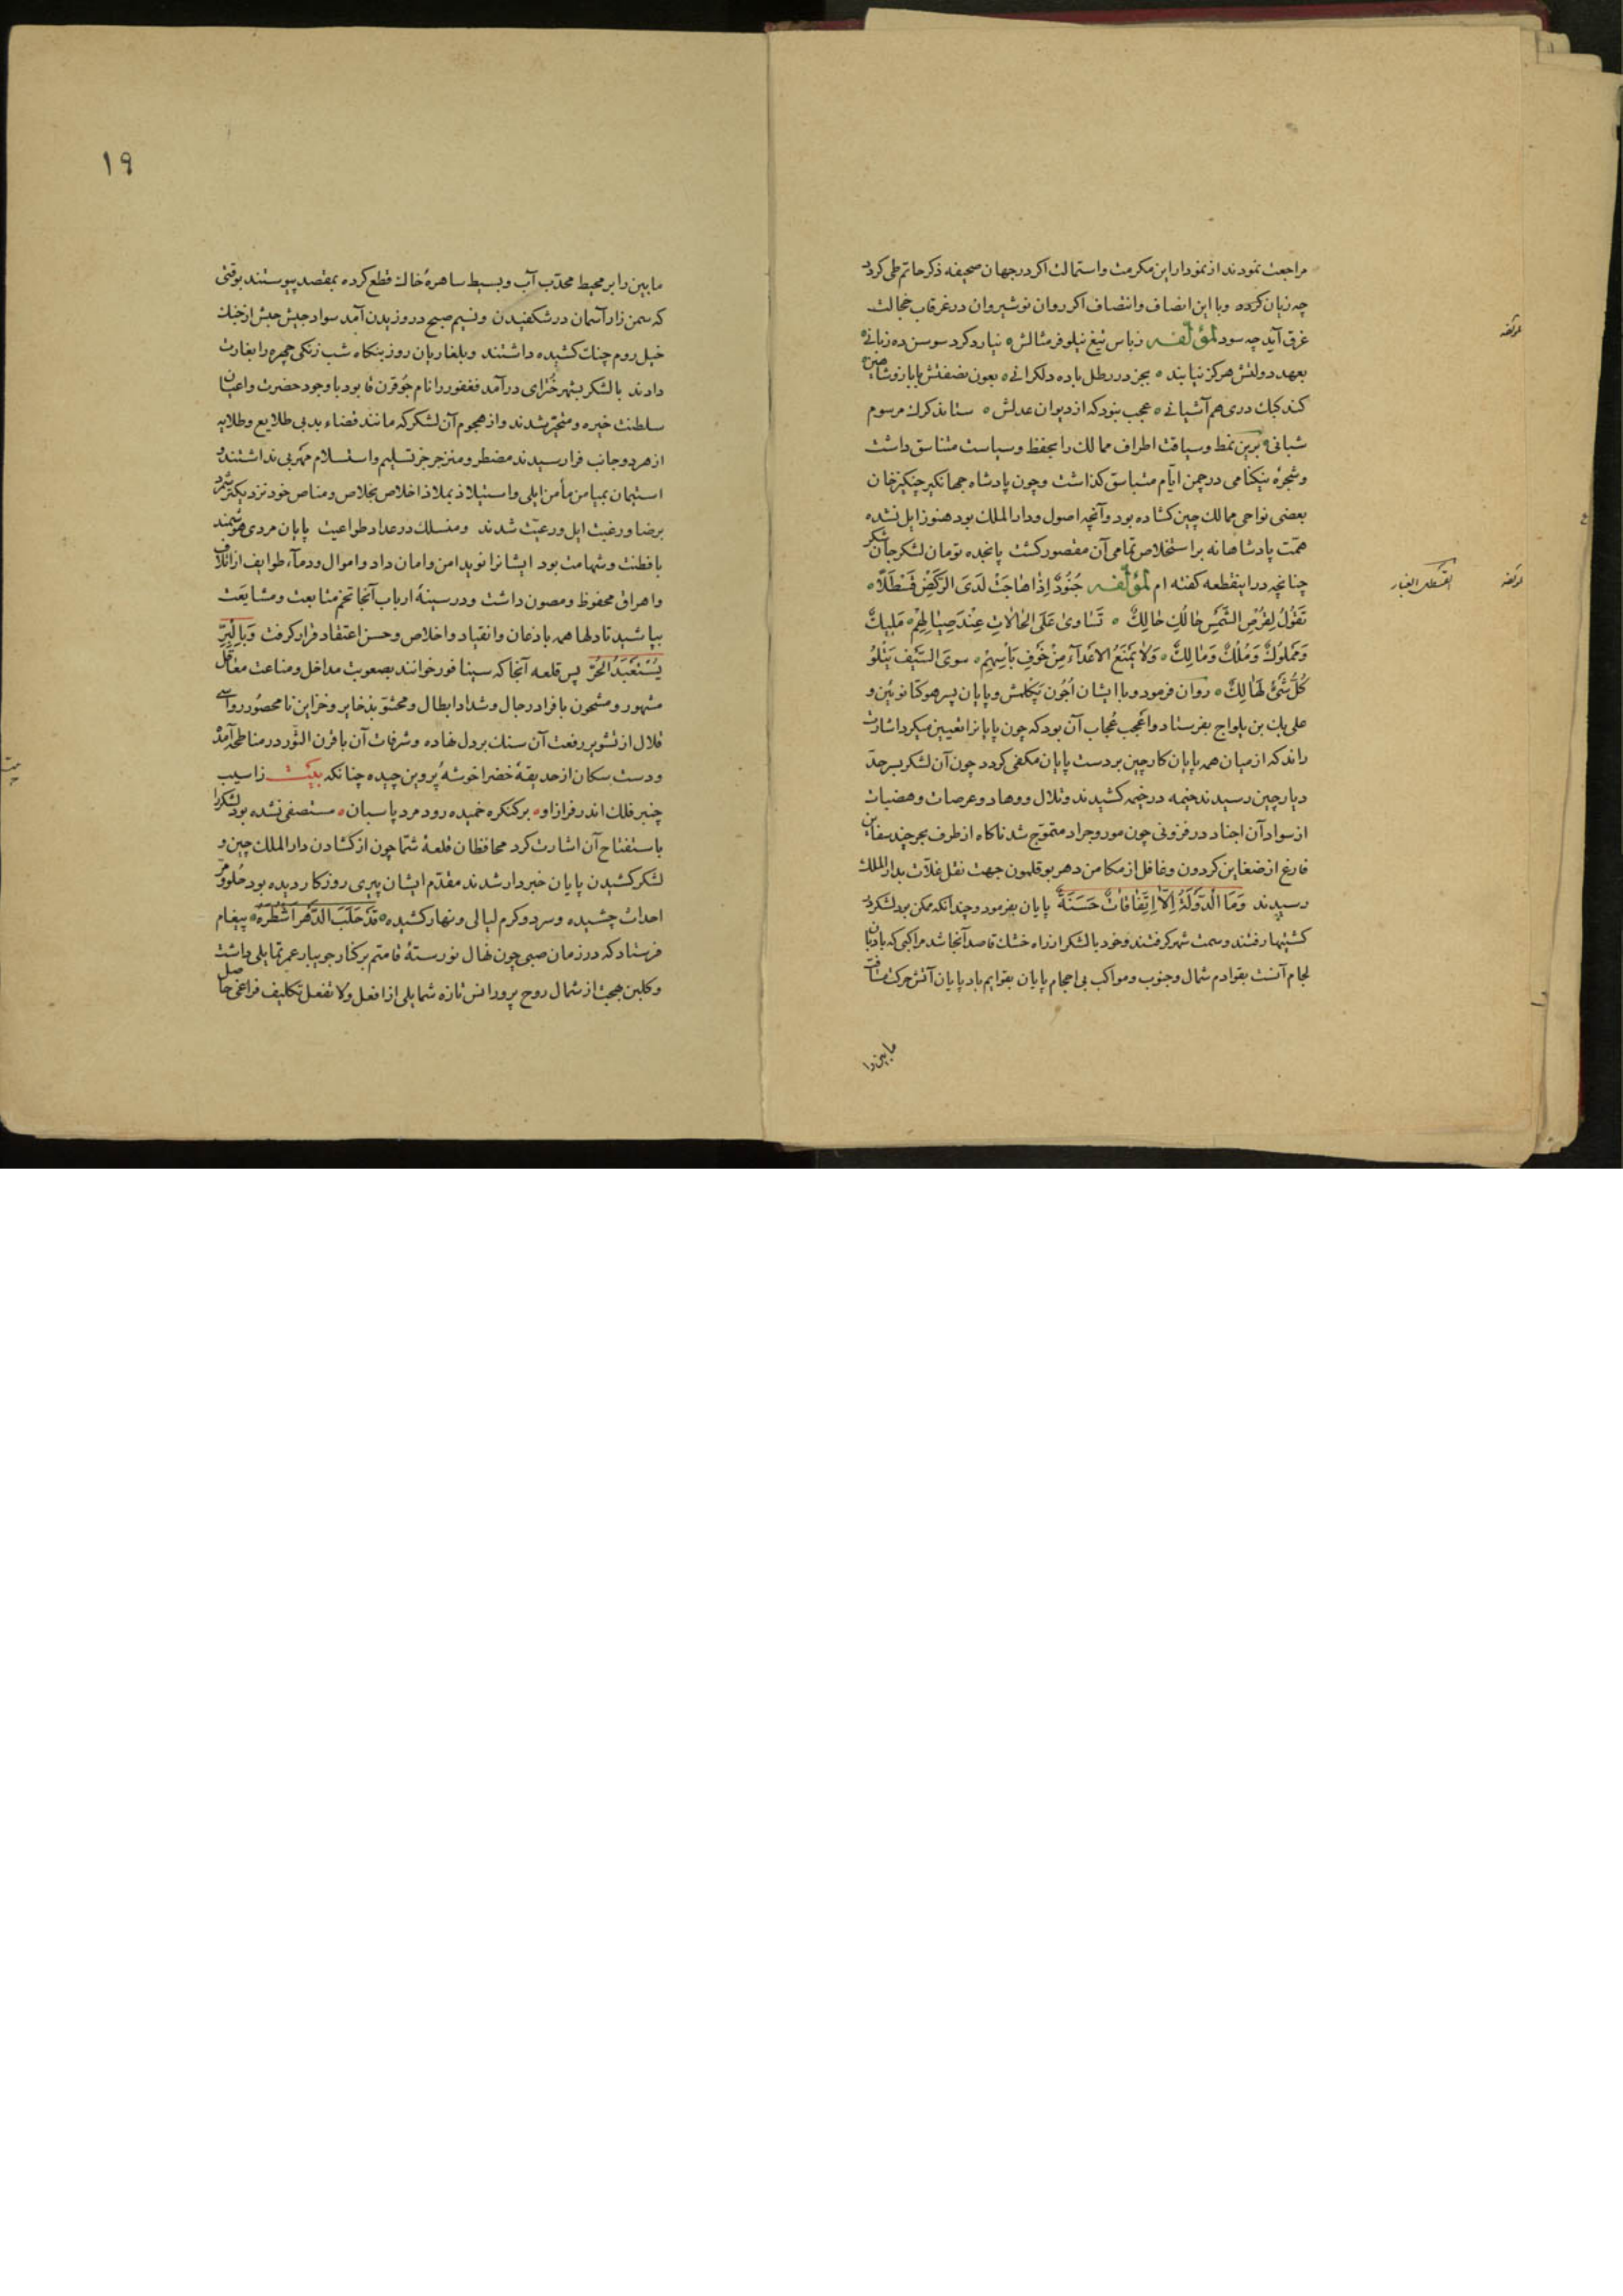 مراجعت نمودند از نمودار این مکرمت و استمالت اکر در جهان صحیفه ذکر حاتم طی کردد
چه زیان کرده و با این انصاف و انتصاف اکر روان نوشیروان در غرقاب خجالت
غرق آید چه سود لمؤلفه زباس تیغ نیلوفر مثالش نیارد کرد سوسن ده زبانی
بعهد دولتش هرکز نیابند بجز در رطل باده دلکرانی بعون نصفتش با باز و شاهین
کند کبک دری هم آشیانی عجب نبود که از دیوان عدلش ستاند کرک مرسوم
شبانی برین نمط و سیاقت اطراف ممالک را بحفظ و سیاست متناسق داشت
و شجره نیکنامی در چمن ایام متباسق کذاشت و چون پادشاه جهانکیر چنکیز خان
بعضی نواحی ممالک چین کشاده بود و آنچه اصول و دار الملک بود هنوز ایل نشده
همت پادشاهانه بر استخلاص تمامی آن مقصور کشت پانجده تومان لشکر جان شکر
چنانچه در اینقطعه کفته ام لمؤلفه جُنُودٌ اِذٰا هٰاجَتْ لَدَی الرَکضِ قَسْطَلًا
تَقُوُلُ لِقُرْصِ الشَّمْسِ حٰالُكِ حٰالِكٌ تَسٰاوىٰ عَلَى الحٰالاٰتِ عِنْدَ صِيٰالِهِمْ مَليكٌ
وَمَمْلوُكٌ وَمُلْكٌ وَمٰالِكٌ وَلاٰ يَمْنَعُ الاَعْدٰآءَ مِنْ خَوْفِ بَأسِهِمْ سوى السَّيْفِ يَتْلوُ
كُلُّ شَئٍ هٰالِكٌ روان فرمود و با ایشان اُجُون نیکلمش و پایان پسر هوکتا نوئین و
علی بك بن یلواج بفرستاد و اعجب عُجاب آن بود که چون پایانرا تعیین میکرد اشارت
راند که از میان همه پایان کار چین بر دست پایان مکفی کردد چون آن لشکر بسرحد
دیار چین رسیدند خیمه در خیمه کشیدند و تلال و وهاد و عرصات و هضبات
از سواد آن اجناد در فزونی چون مور و جراد متموج شد ناکاه از طرف بحر چند سفاین
فارغ از ضغاین کردون و غافل از مکامن دهر بوقلمون جهت نقل غلات بدار الملك
رسیدند وَمَا الْدَوْلَةُ اِلاّٰ اِتِّفٰاقٰاتٌ حَسَنَةٌ پایان بفرمود و چندانکه ممکن بود لشکر در
کشتیها رفتند و سمت شهر کرفتند و خود با لشکر از راه خشك قاصد آنجا شد مراکبی که بادبان
لجام آنست بقوادم شمال و جنوب و مواکب بی احجام پایان بقوایم باد پایان آتش حرکت مسافت
ما بین را
القسطل الغبار
لمؤلفه
لمؤلفه
۱۹
ما بین را بر محیط محدّب آب و بسیط ساهرهٔ خاك قطع کرده بمقصد پیوستند بوقتی
که سمن زار آسمان در شکفیدن و نسیم صبح در وزیدن آمد سواد جیش حبش از خنك
خیل روم چنان کشیده داشتند و بلغاریان روز بنکاه شب زنکی چهره را بغارت
دادند با لشکر بشهر خُنزای درآمد فغفور را نام جُو قرن قا بود با وجود حضرت و اعیان
سلطنت خیره و متحیر شدند و از هجوم آن لشکر که مانند قضاء بد بی طلایع و طلایه
از هر دو جانب فرا رسیدند مضطر و منزجر جز تسلیم و استسلام مهربی نداشتند و
استیمان بمیامن مأمن ایلی و استیلاذ بملاذ اخلاص بخلاص و مناص خود نزدیکتر شمرد
برضا و رغبت ایل و رعیت شدند و منسلك در عداد طواعیت پایان مردی هوشمند
با فطنت و شهامت بود ایشانرا نوید امن و امان داد و اموال و دمآء طوایف از اتلاف
و اهراق محفوظ و مصون داشت و در سینهٔ ارباب آنجا تخم متابعت و مشایعت
بپاشید تا دلها همه با ذعان و انقیاد و اخلاص و حسن اعتقاد قرار کرفت وَبِالْبِرِّ
يُسْتَعْبَدُ الحُرّ پس قلعه آنجا که سینا فور خوانند بصعوبت مداخل و مناعت معاقل
مشهور و مشحون بافراد رجال و شداد ابطال و محشوّ بذخایر و خزاین نا محصور رواسی
قلال از تشویر رفعت آن سنك بر دل نهاده و شرفات آن با قرن الثور در مناطحه آمده
و دست سکان از حدیقهٔ خضرا خوشهٔ پروین چیده چنانکه بَیْت ز اسیب
چنبر فلك اندر فراز او بر کنکره خمیده رود مرد پاسبان مستصفی نشده بود لشکر را
باستفتاح آن اشارت کرد محافظان قلعهٔ شمّا چون از کشادن دار الملك چین و
لشکر کشیدن پایان خبردار شدند مقدّم ایشان پیری روزکار دیده بود حُلو و مرّ
احداث چشیده و سرد و کرم لیالی و نهار کشیده قَدْ حَلَبَ الدَّهْرَ اَشْطُرَهُ پیغام
فرستاد که در زمان صبی چون نهال نورستهٔ قامتم بر کنار جویبار عمر تمایلی داشت
و کلبن بهجت از شمال روح پرور انس تازه شمایلی از افعل و لا تفعل تکلیف فراغی حاصل